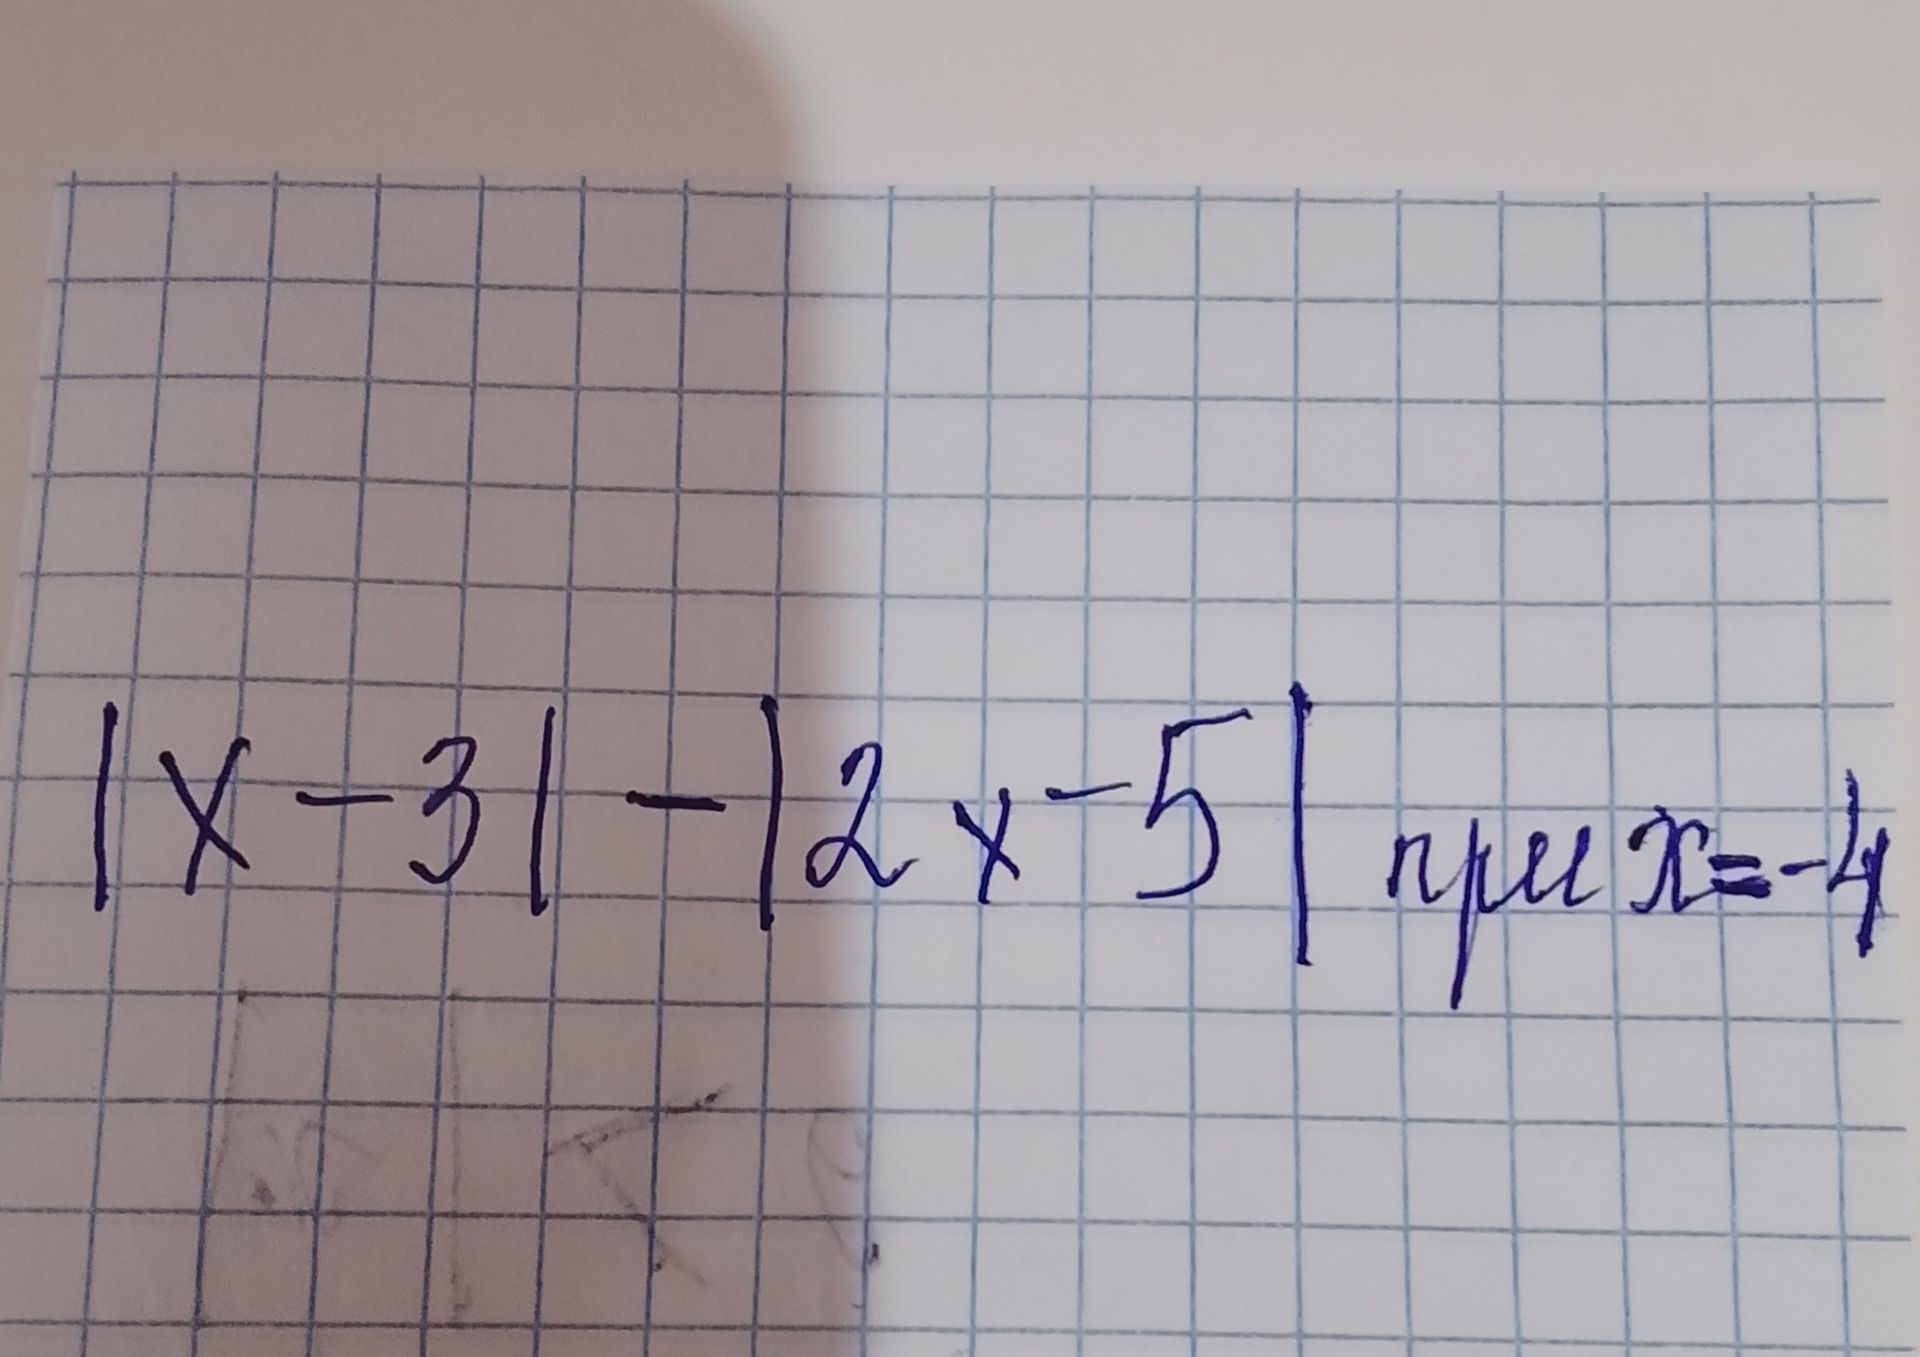 |x-3|-|2x-5| при x=-4